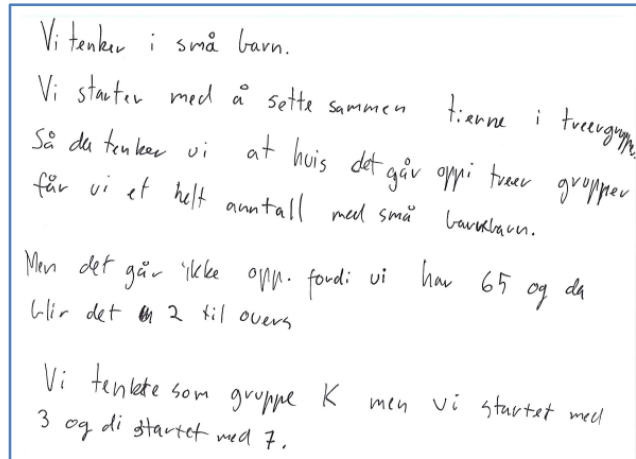 Vi tenker i små barn.
Vi starter med å sette sammen tierne i treergrupper.
Så da tenker vi at hvis det går oppi treer grupper
får vi et helt anntall med små barn.
Men det går ikke opp. fordi vi har 65 og da
blir det 2 til overs
Vi tenkte som gruppe K men vi startet med
3 og di startet med 7.